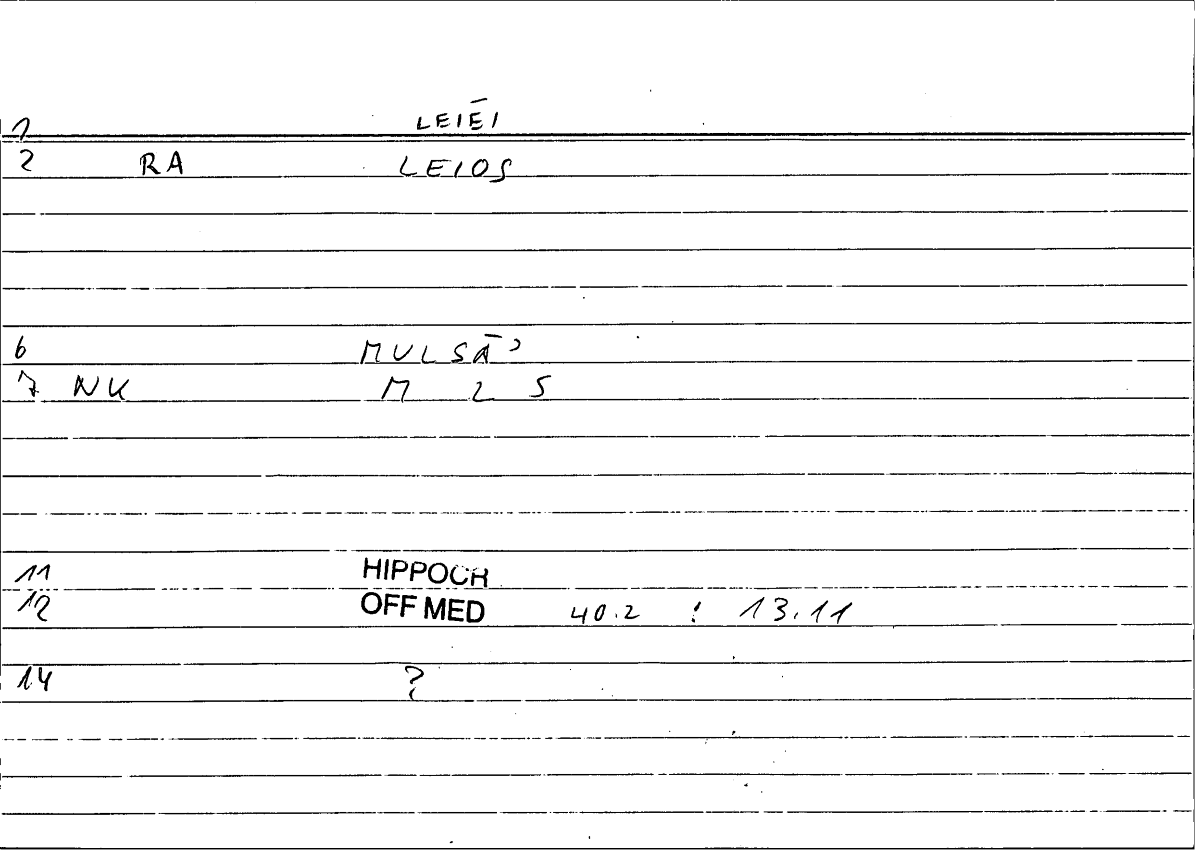 1 LEIĒI
2 RA LEIOS
6 MULSĀ'
7 NK M 2 S
11 HIPPOCR
12 OFF MED 40.2 : 13.11
14 ?